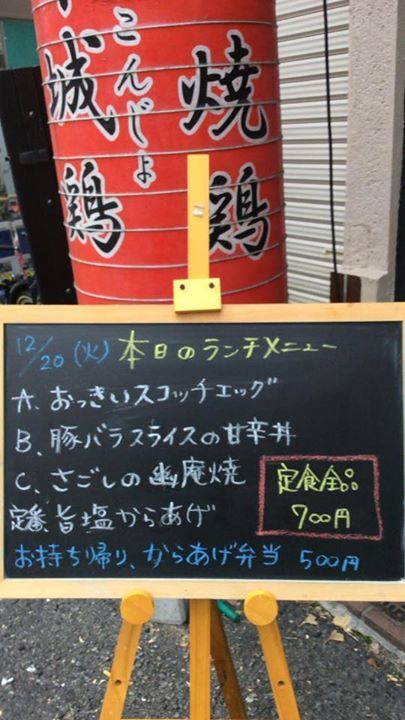 城鶏
こんじょ
焼鶏
12/20(火) 本日のランチメニュー
A、おっきいスコッチエッグ
B、豚バラスライスの甘辛丼
C、さごしの幽庵焼
定番 旨塩からあげ
定食全品
700円
お持ち帰り、からあげ弁当 500円